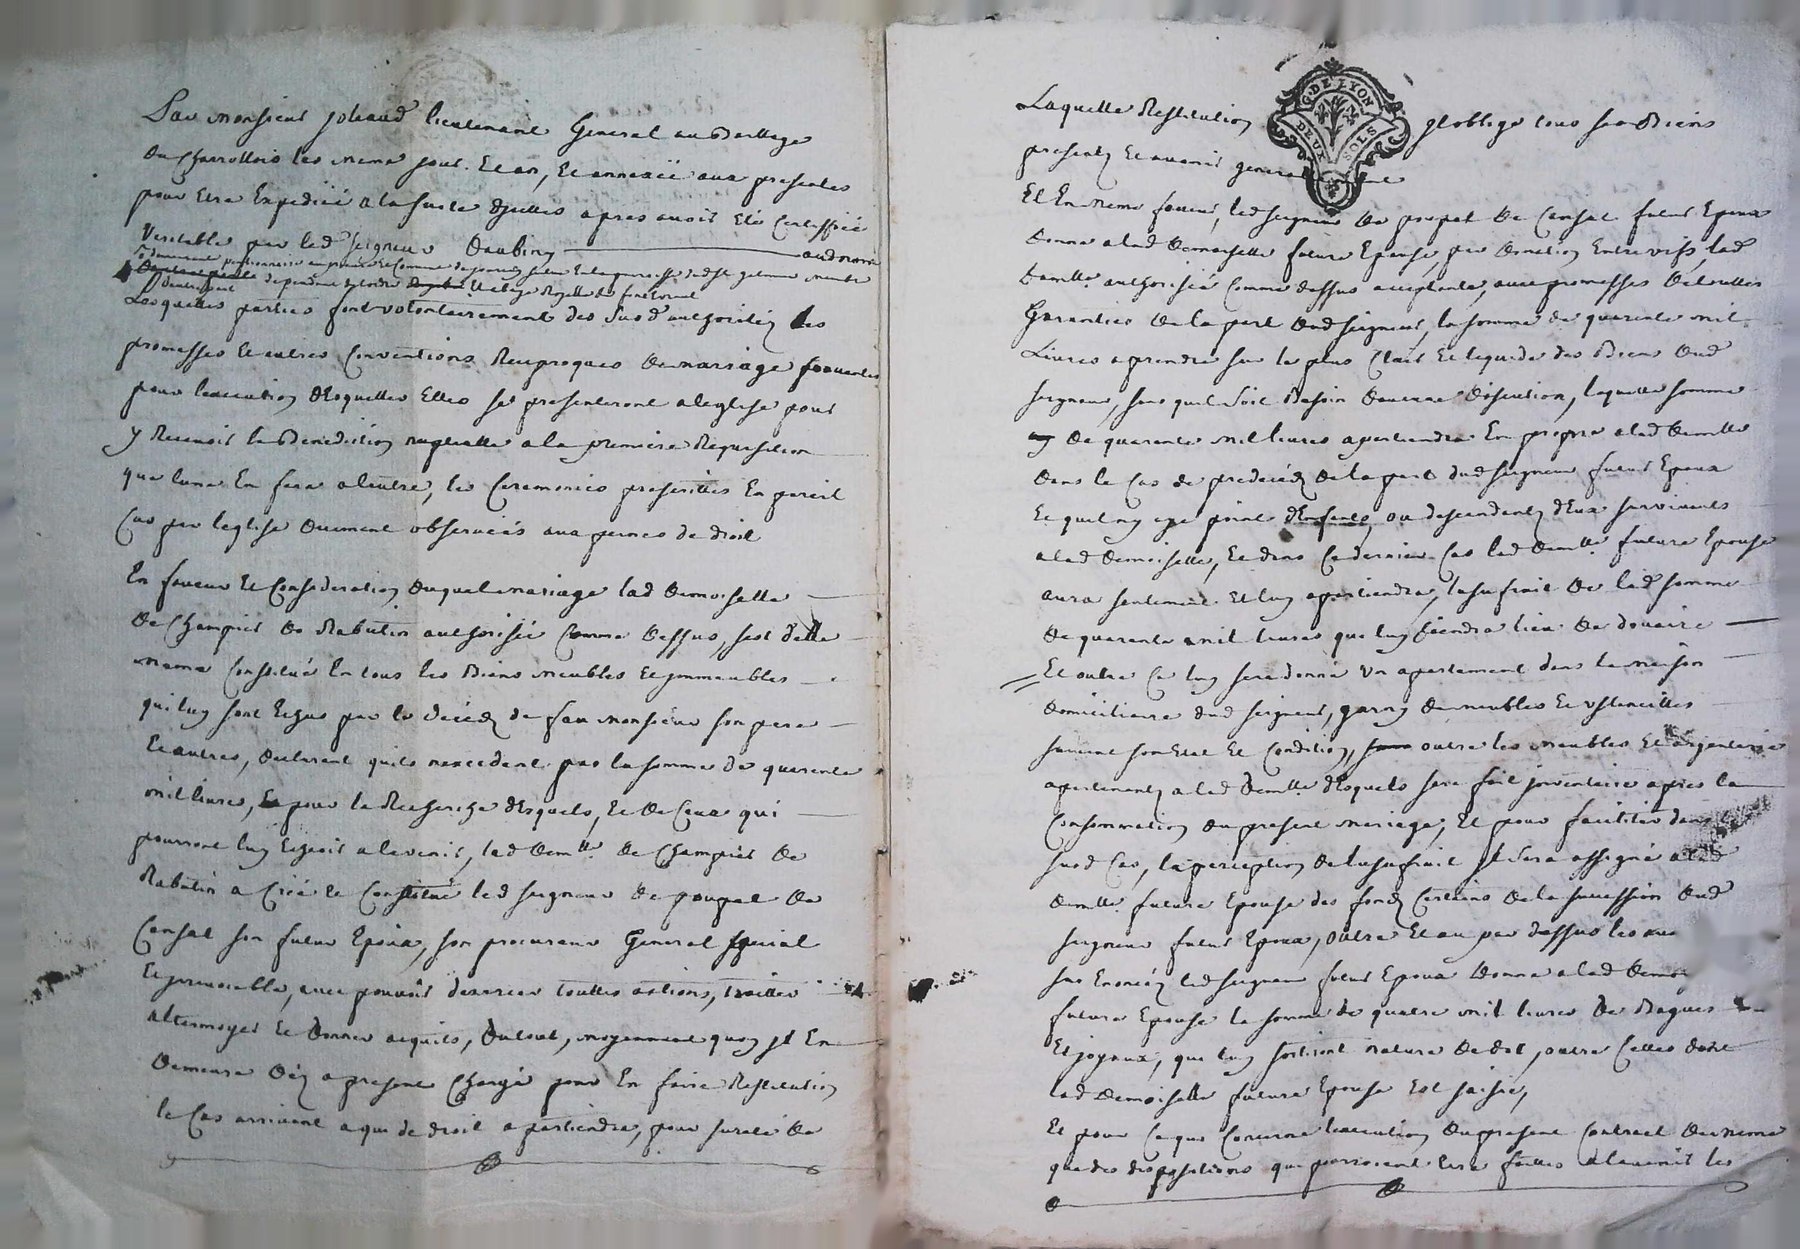 Par monsieur johaud lieutenant General au Bailliage
du Charrollois les meme jour. Et an, Et annexée aux presentes
pour Etre Expediée a la suite d'jcelles apres avoir Eté Certiffiée
Veritable par led seigneur Daubiny aud nom
Lesquelles parties font volontairement des susd authorités les
promesses Et autres Conventions Reciproques de mariage
pour l'execution desquelles Elles se presenteront a l'eglise pour
y Recevoir la Benediction nuptialle a la premiere Requisition
que l'une En fera a l'autre, les Ceremonies prescrittes En pareil
Cas par l'eglise duement observeés aux peines de droit
En faveur Et Consideration duquel mariage lad Demoiselle
de Champier de Rabutin authorisée Comme dessus, s'est d'elle
meme Constitué En tous les Biens meubles Et jmmeubles
qui luy sont Echus par le decéds de feu Monsieur son pere
Et autres, declarant quils nexcedent pas la somme de quarente
mil livres, Et pour la Recherche desquels, Et de Ceux qui
pourront luy Echeoir a l'avenir, lad demlle de Champier de
Rabutin a Créé Et Constitué led seigneur de poupet de
Consat son futur Epoux, son procureur General special
Et jrrevocable, avec pouvoir d'exercer touttes actions, traitter
attermoyer Et donner acquits, du tout, moyennant quoy jl En
demeure déz a present Chargé pour En faire Restitution
le Cas arrivant a qui de droit apartiendra, pour sureté de
Laquelle Restitution jl oblige tous ses Biens
presents Et avenir generalement
Et En meme faveur, led seigneur de poupet de Consat futur Epoux
donne a lad demoiselle future Epouse, par donation Entre vifs, lad
demlle authorisée Comme dessus acceptante, avec promesses de touttes
Garanties de la part dud seigneur, la somme de quarente mil
Livres a prendre sur le plus Clair Et liquide des Biens dud
seigneur, sans quil soit Besoin d'aucune discution, laquelle somme
de quarente mil livres apartiendra En propre a lad demlle
dans le Cas de predecéds de la part dud seigneur futur Epoux
Et quil ny aye point d'Enfants, ou descendents d'Eux survivants
a lad demoiselle, Et dans Ce dernier Cas lad demlle future Epouse
aura seulement Et luy apartiendra, l'usufruit de lad somme
de quarente mil livres qui luy tiendra lieu de douaire
Et outre Ce luy sera donné un apartement dans la maison
domiciliaire dud seigneur, garny de meubles Et ustancilles
suivant son Etat Et Condition, outre les meubles Et argenterie
apartenants a lad demlle desquels sera fait jnventaire apres la
Consommation du present mariage, Et pour faciliter dans
susd Cas, la perception de l'usufruit jl sera assigné a lad
demlle future Epouse des fonds Certains de la succession dud
seigneur futur Epoux, outre Et au par dessus les
sus Enoncés led seigneur futur Epoux donne a lad
future Epouse la somme de quatre mil livres de Bagues
Et joyaux, qui luy sortiront nature de dot, outre Celles dont
lad demoiselle future Epouse est saisie,
Et pour Ce qui Concerne l'execution du present Contract de meme
que des dispositions qui pourroient Etre faittes a l'avenir les
G. DE LYON
DEUX SOLS